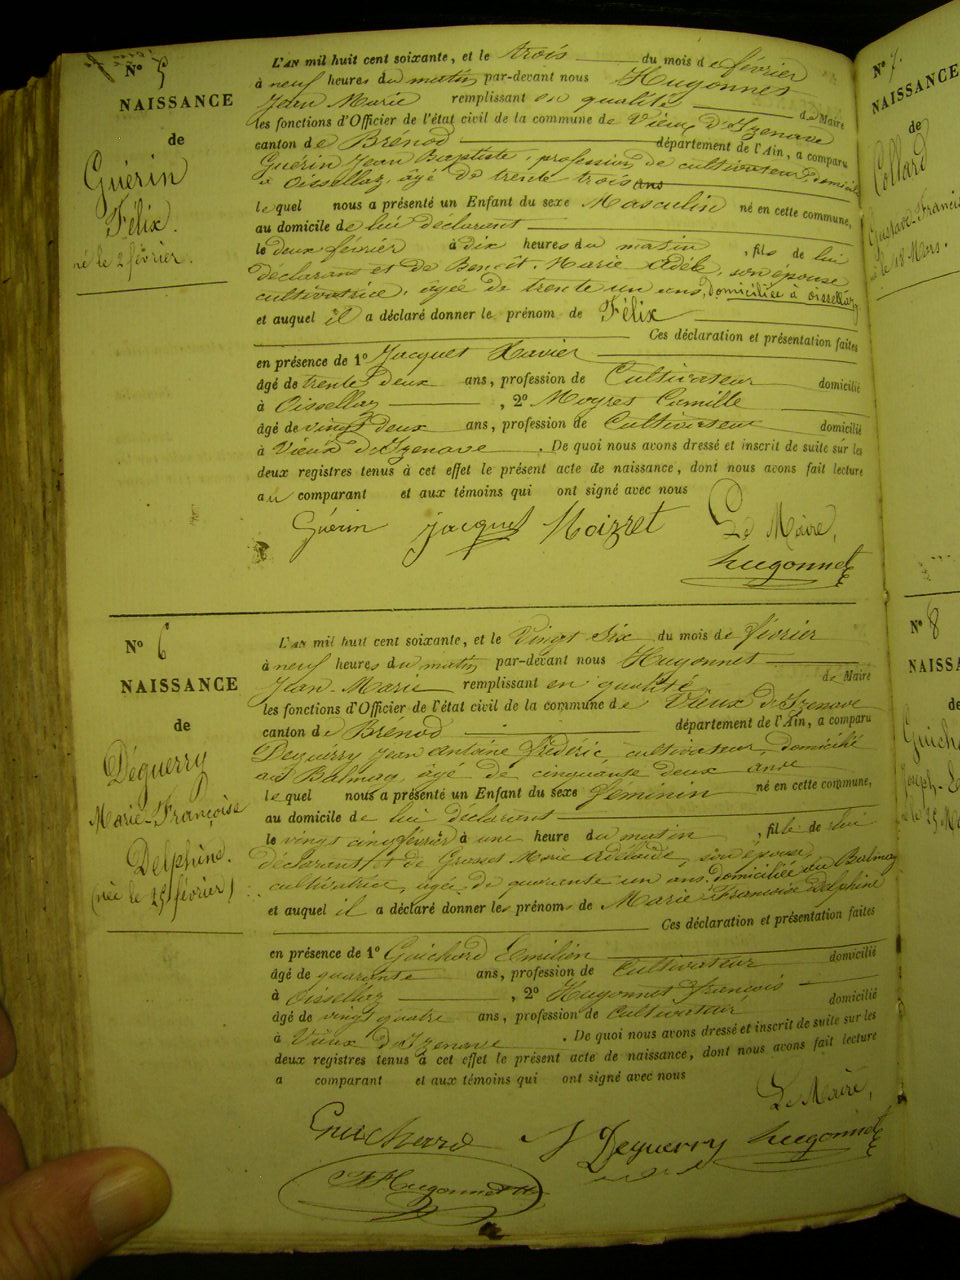 N° 5
NAISSANCE
de
Guérin
Félix.
né le 2 février.
L'AN mil huit cent soixante, et le trois du mois de février
à neuf heures du matin par-devant nous Hugonnet
Jean Marie remplissant en qualité de Maire
les fonctions d'Officier de l'état civil de la commune de Vieux d'Izenave
canton de Brénod département de l'Ain, a comparu
Guérin Jean Baptiste, profession de cultivateur, domicilié
à Oissellaz, âgé de trente trois ans
lequel nous a présenté un Enfant du sexe Masculin né en cette commune,
au domicile de lui déclarant
le deux février à dix heures du matin, fils de lui
déclarant et de Benoit Marie Adèle, son épouse
cultivatrice, âgée de trente un ans, domiciliée à Oissellaz
et auquel il a déclaré donner le prénom de Félix
Ces déclaration et présentation faites
en présence de 1° Jacquet Xavier
âgé de trente deux ans, profession de Cultivateur domicilié
à Oissellaz, 2° Moyret Camille
âgé de vingt deux ans, profession de Cultivateur domicilié
à Vieux d'Izenave. De quoi nous avons dressé et inscrit de suite sur les
deux registres tenus à cet effet le présent acte de naissance, dont nous avons fait lecture
au comparant et aux témoins qui ont signé avec nous
Guérin Jacquet Moizret Le Maire,
Hugonnet
N° 6
NAISSANCE
de
Déguerry
Marie-Françoise
Delphine.
(née le 25 février)
L'AN mil huit cent soixante, et le Vingt Six du mois de février
à neuf heures du matin par-devant nous Hugonnet
Jean-Marie remplissant en qualité de Maire
les fonctions d'Officier de l'état civil de la commune de Vieux d'Izenave
canton de Brénod département de l'Ain, a comparu
Deguerry Jean Antoine Frédéric cultivateur, domicilié
au Balmay, âgé de cinquante deux ans
lequel nous a présenté un Enfant du sexe feminin né en cette commune,
au domicile de lui déclarant
le vingt cinq février à une heure du matin, fille de lui
déclarant et de Grosset Marie Adélaide, son épouse,
cultivatrice, âgée de quarante un ans domiciliée au Balmay
et auquel il a déclaré donner les prénoms de Marie Françoise Delphine
Ces déclaration et présentation faites
en présence de 1° Guichard Emilien domicilié
âgé de quarante ans, profession de Cultivateur
à Oissellaz, 2° Hugonnet François domicilié
âgé de vingt quatre ans, profession de Cultivateur
à Vieux d'Izenave. De quoi nous avons dressé et inscrit de suite sur les
deux registres tenus à cet effet le présent acte de naissance, dont nous avons fait lecture
a comparant et aux témoins qui ont signé avec nous
Le Maire,
Guichard J Deguerry Hugonnet
F Hugonnet
N° 7.
NAISSANCE
de
Collard
Gustave-Francis
né le 18 Mars.
N° 8
NAISSA
de